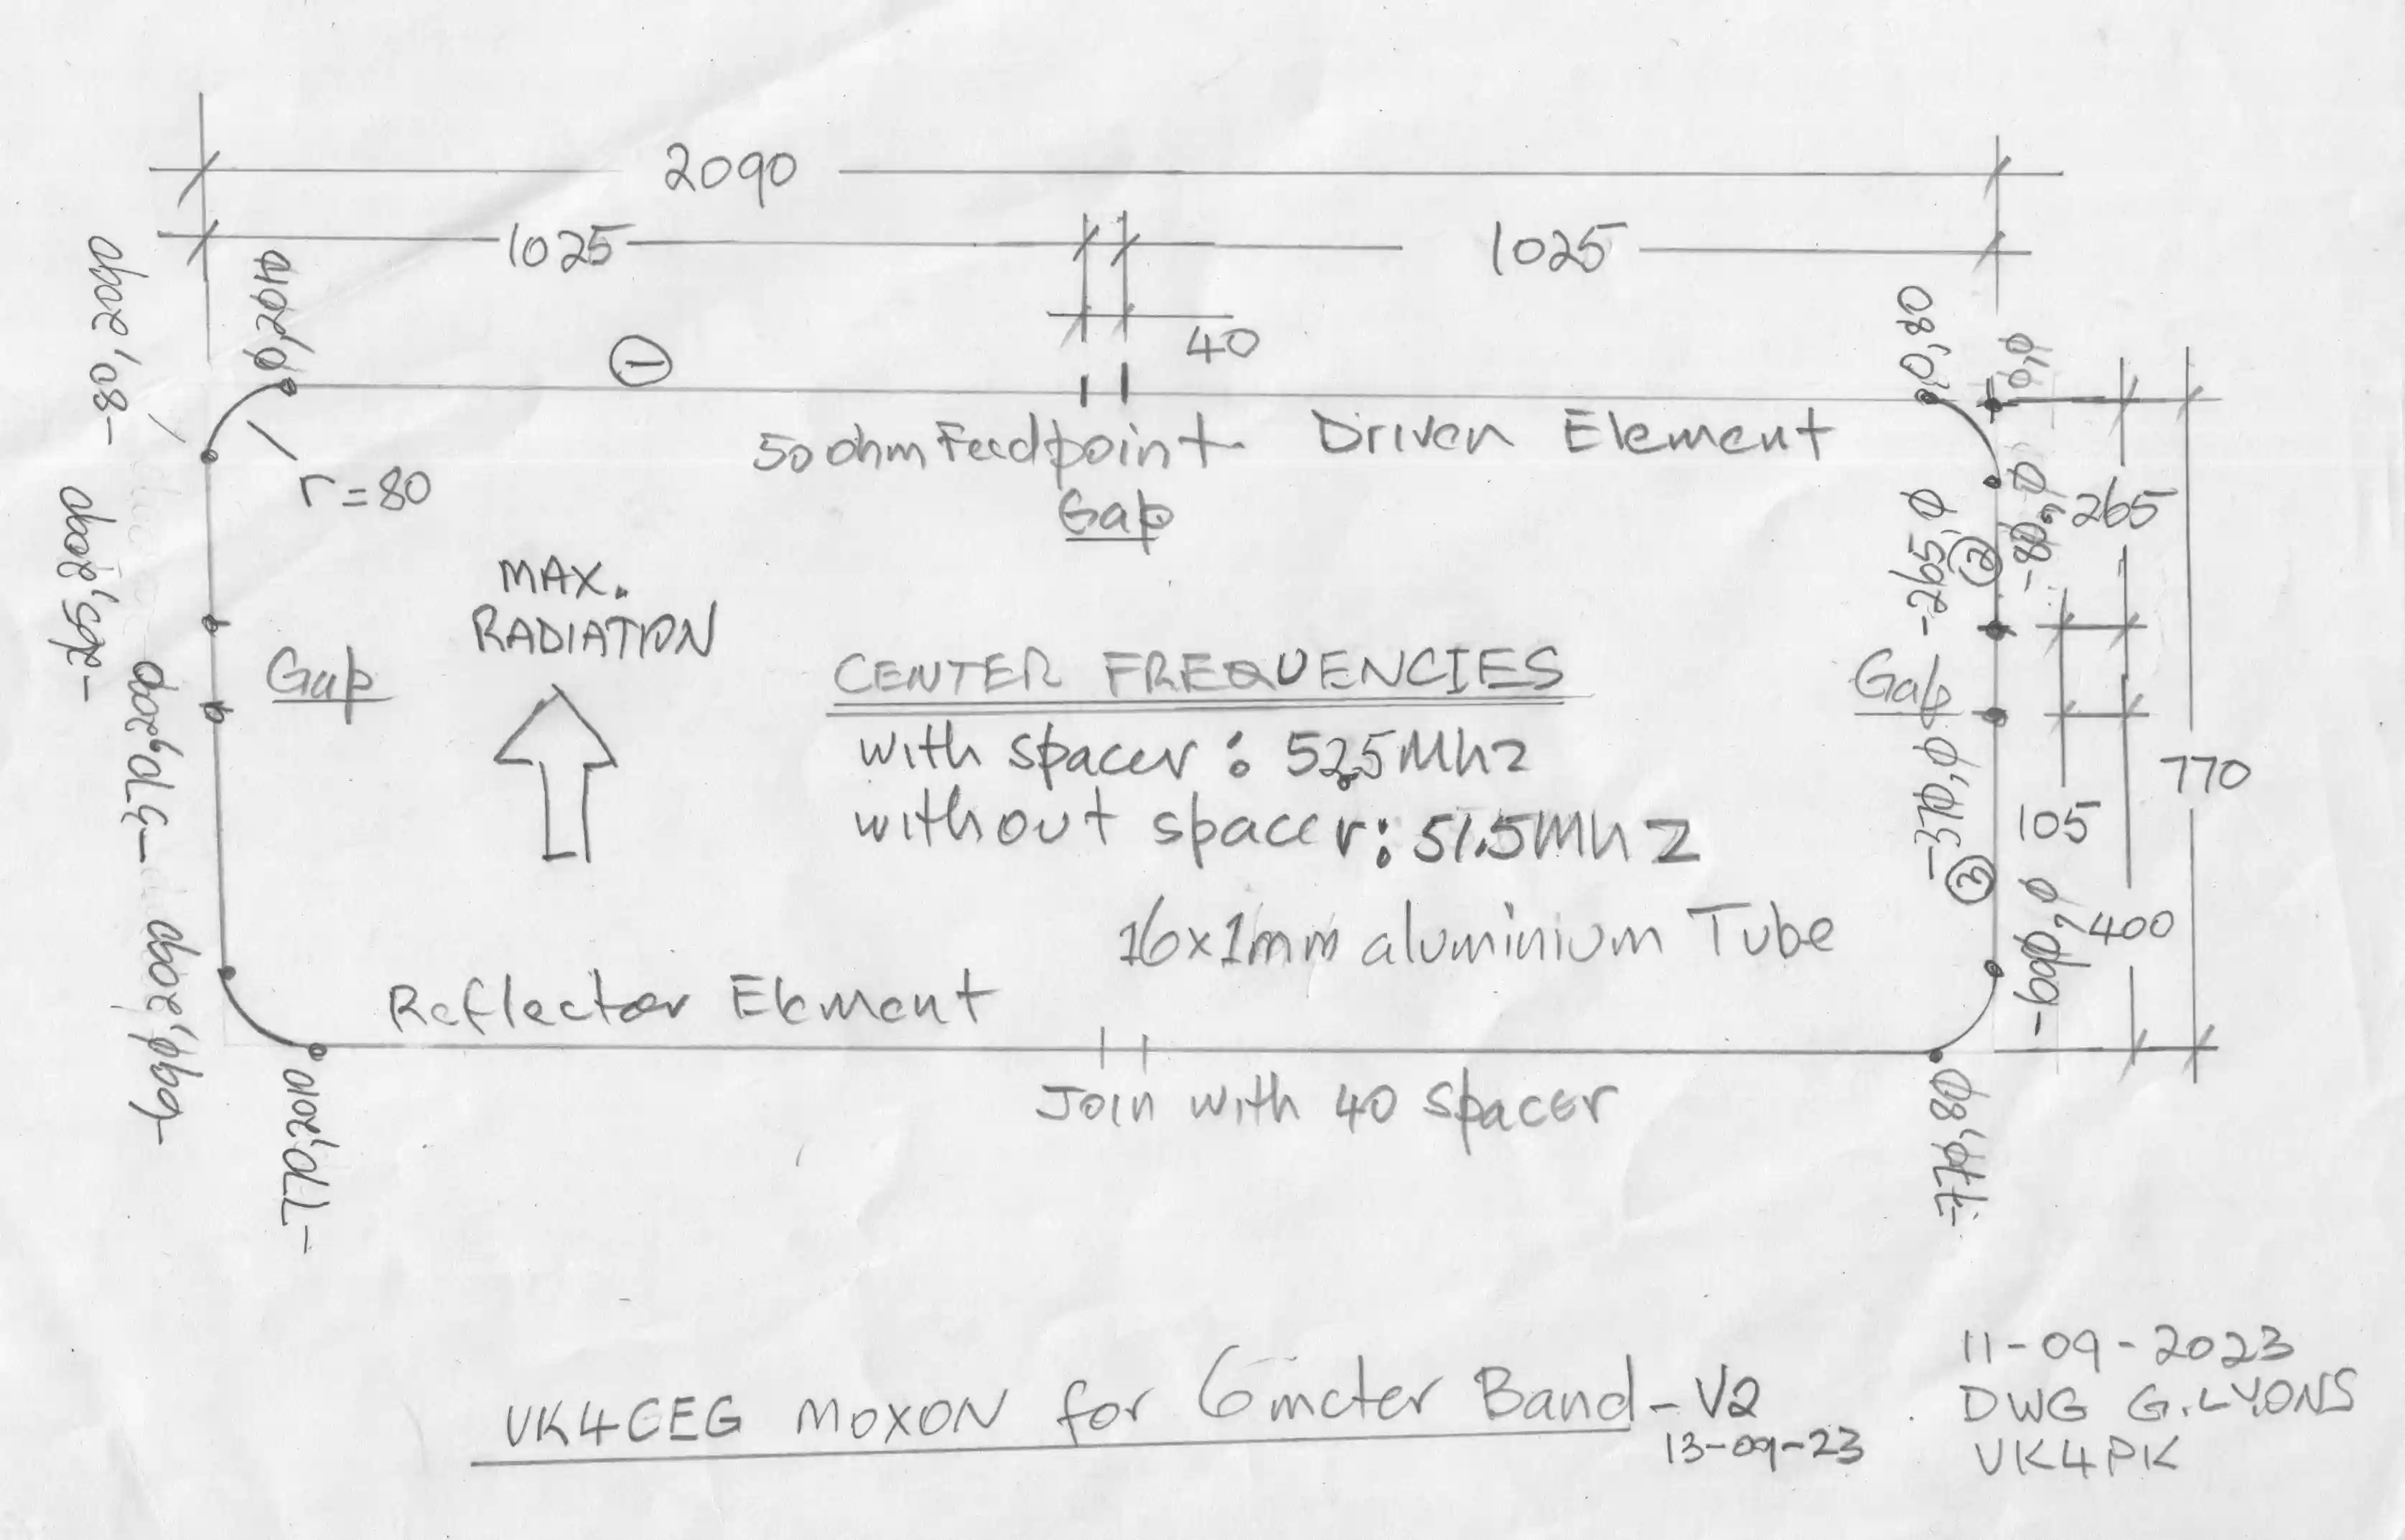 2090
1025
1025
40
①
0,2010
-80,2090
0,80
0,0
r=80
50 ohm Feedpoint
Gap
Driven Element
-80,0
265
-265,0
②
-265,2090
MAX.
RADIATION
Gap
CENTER FREQUENCIES
with spacer: 52.5Mhz
without spacer: 51.5Mhz
16x1mm aluminium Tube
Gap
-370,2090
-370,0
③
105
770
-690,0
400
-690,2090
Reflector Element
Join with 40 spacer
-770,2010
-770,80
VK4CEG MOXON for 6meter Band - V2
13-09-23
11-09-2023
DWG G.LYONS
VK4PK